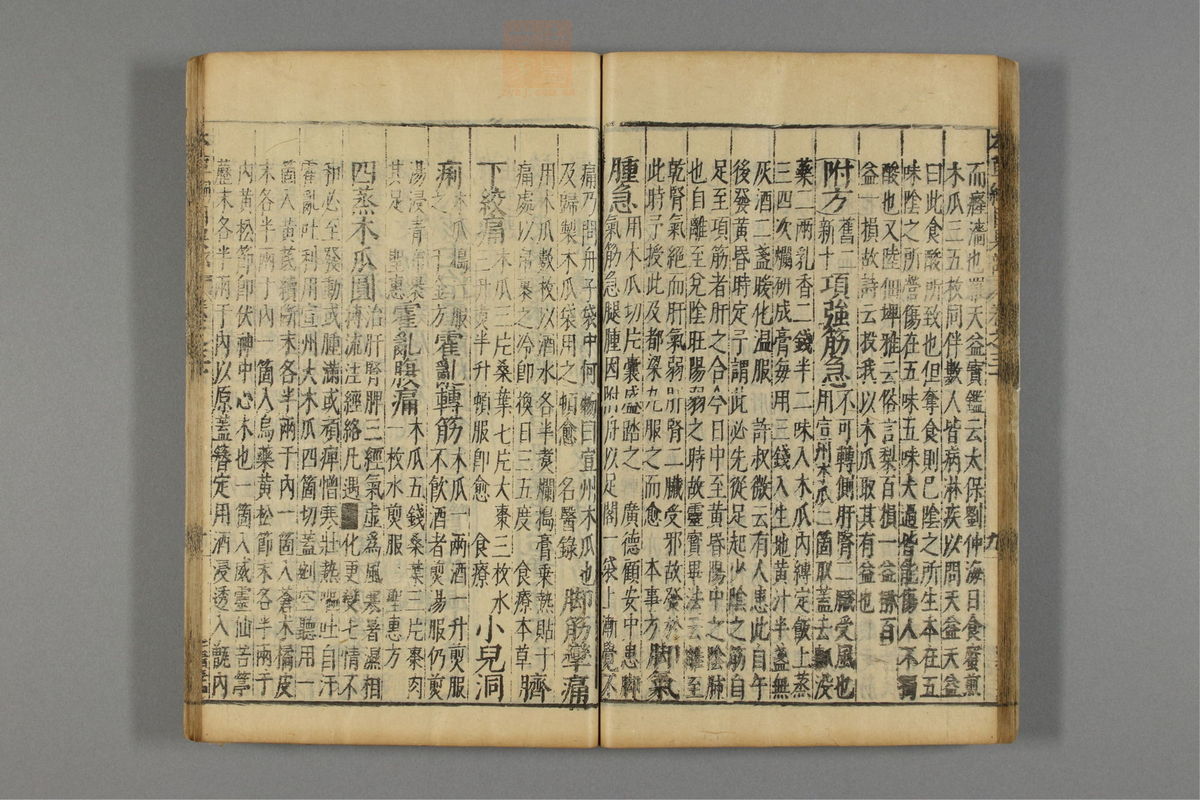 而癃濇也羅天益寶鑑云太保劉仲海日食蜜煎
木瓜三五枚同伴數人皆病淋疾以問天益天益
曰此食酸所致也但奪食則已陰之所生本在五
味陰之所營傷在五味五味太過皆能傷人不獨
酸也又陸佃埤雅云俗言梨百損一益楙百
益一損故詩云投我以木瓜取其有益也
附方舊二新十項強筋急不可轉側肝腎二臟受風也
用宣州木瓜二箇取蓋去瓤没
藥二兩乳香二錢半二味入木瓜內縛定飯上蒸
三四次爛研成膏每用三錢入生地黃汁半盞無
灰酒二盞暖化温服 許叔微云有人患此自午
後發黃昏時定予謂此必先從足起少陰之筋自
足至項筋者肝之合今日中至黃昏陽中之陰肺
也自離至兌陰旺陽弱之時故靈寶畢法云離至
乾腎氣絕而肝氣弱肝腎二臟受邪故發於
此時予授此及都梁丸服之而愈 本事方脚氣
腫急用木瓜切片囊盛踏之 廣德顧安中患脚
氣筋急腿腫因附舟以足閣一袋上漸覺不
痛乃問舟子袋中何物曰宣州木瓜也
及歸製木瓜袋用之頓愈 名醫錄脚筋攣痛
用木瓜數枚以酒水各半煑爛搗膏乗熱貼于
痛處以帛褁之冷即換日三五度 食療本草臍
下絞痛木瓜三片桑葉七片大棗三枚水
三升煑半升頓服即愈 食療小兒洞
痢木瓜搗汁服
之 千金方霍亂轉筋木瓜一兩酒一升煎服
不飲酒者煎湯服仍煎
湯浸青布褁
其足 聖惠霍亂腹痛木瓜五錢桑葉三片棗肉
一枚水煎服 聖惠方
四蒸木瓜圓治肝腎脾三經氣虛爲風寒暑濕相
搏流注經絡凡遇 化更變七情不
和必至發動或腫滿或頑痺憎寒壯熱嘔吐自汗
霍亂吐利用宣州大木瓜四箇切蓋剜空聽用一
箇入黃芪續斷末各半兩于內一箇入蒼朮橘皮
末各半兩于內一箇入烏藥黃松節末各半兩于
內黃松節即伏神中心木也一箇入威靈仙苦葶
藶末各半兩于內以原蓋簪定用酒浸透入甑內